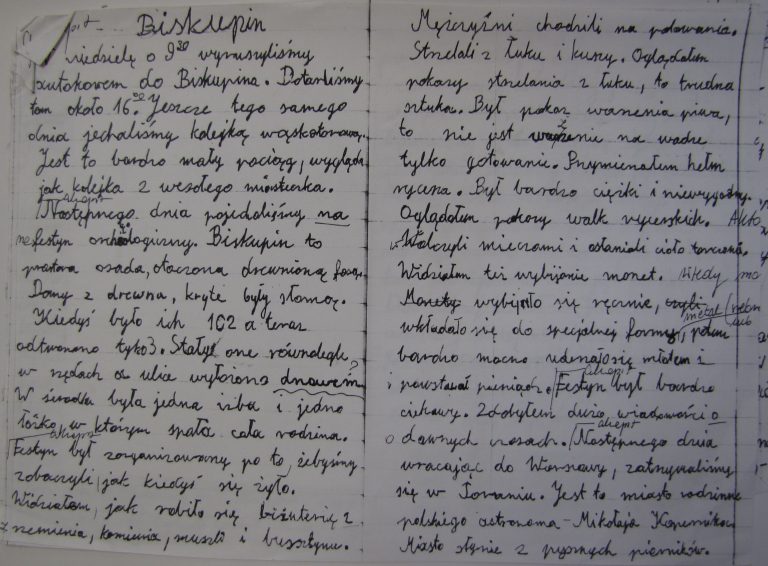 Biskupin
niedzielę o 9³⁰ wyruszyliśmy
autokarem do Biskupina. Dotarliśmy
tam około 16.⁰⁰ Jeszcze tego samego
dnia jechaliśmy kolejką wąskotorową.
Jest to bardzo mały pociąg, wygląda
jak kolejka z wesołego miasteczka.
akapit
Następnego dnia pojechaliśmy na
festyn archeologiczny. Biskupin to
prastara osada, otoczona drewnianą fosą.
Domy z drewna, kryte były słomą.
Kiedyś było ich 102 a teraz
odtworzono tyko 3. Stały one równolegle
w rzędach a ulice wyłożono drewnem.
W środku była jedna izba i jedno
łóżko w którym spała cała rodzina.
akapit
Festyn był zorganizowany po to, żebyśmy
zobaczyli jak kiedyś się żyło.
Widziałam, jak robiło się biżuterię z
rzemienia, kamienia, muszli i bursztynu.
Mężczyźni chodzili na polowania.
Strzelali z łuku i kuszy. Oglądałam
pokazy strzelania z łuku, to trudna
sztuka. Był pokaz warzenia piwa,
to nie jest warzenie na wadze
tylko gotowanie. Przymierzałam hełm
rycerza. Był bardzo ciężki i niewygodny.
Oglądałam pokazy walk rycerskich.
Walczyli mieczami i osłaniali ciało tarczami.
Widziałam też wybijanie monet. Kiedy
Monety wybijało się ręcznie, czyli
metal
wkładało się do specjalnej formy, potem
bardzo mocno uderzało się młotem i
powstawał pieniądz. Festyn był bardzo
akapit
ciekawy. Zdobyłem dużo wiadomości o
akapit
dawnych czasach. Następnego dnia
wracając do Warszawy, zatrzymaliśmy
się w Toruniu. Jest to miasto rodzinne
polskiego astronoma - Mikołaja Kopernika.
Miasto słynie z pysznych pierników.